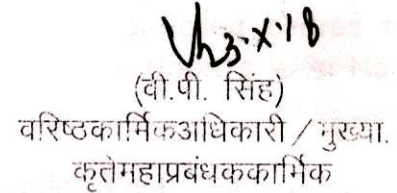 23.X.18
(वी.पी. सिंह)
वरिष्ठकार्मिकअधिकारी / मुख्या.
कृतेमहाप्रबंधककार्मिक